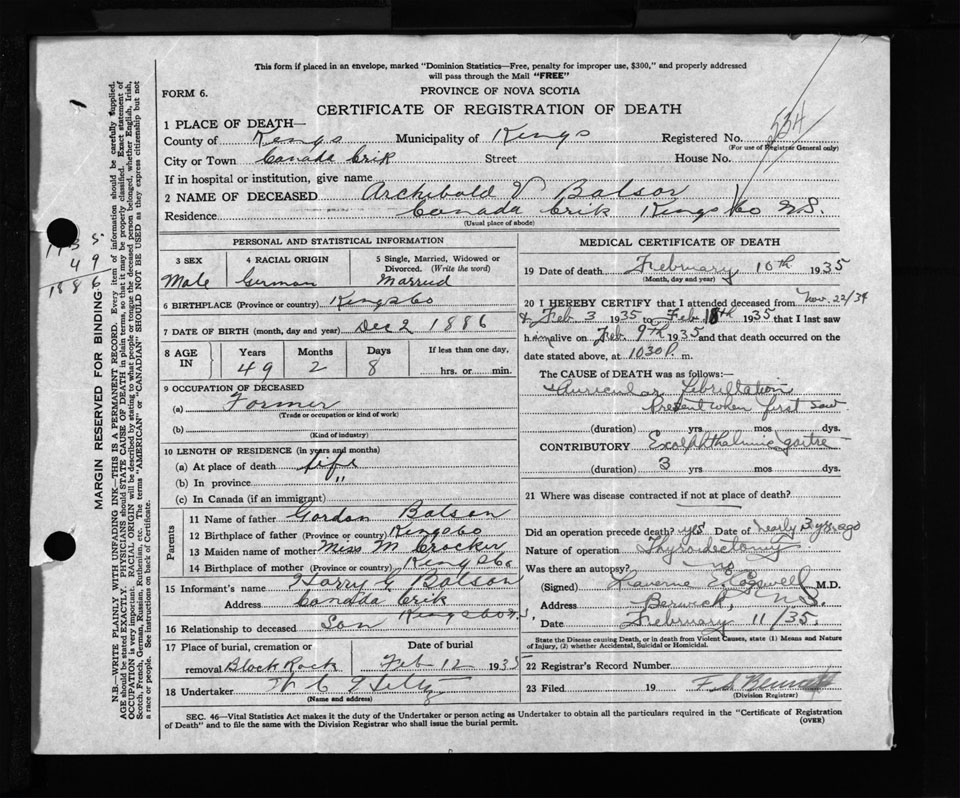 This form if placed in an envelope, marked "Dominion Statistics—Free, penalty for improper use, $300," and properly addressed
will pass through the Mail "FREE"
FORM 6.
PROVINCE OF NOVA SCOTIA
CERTIFICATE OF REGISTRATION OF DEATH
1 PLACE OF DEATH—
County of Kings Municipality of Kings Registered No. 534
(For use of Registrar General only)
City or Town Canada Crik Street House No.
If in hospital or institution, give name
2 NAME OF DECEASED Archibald V Balsor
Residence Canada Crik Kings Co N.S.
(Usual place of abode)
PERSONAL AND STATISTICAL INFORMATION
3 SEX 4 RACIAL ORIGIN 5 Single, Married, Widowed or
Divorced. (Write the word)
Male German Married
6 BIRTHPLACE (Province or country) Kings Co
7 DATE OF BIRTH (month, day and year) Dec 2 1886
8 AGE IN Years Months Days If less than one day,
49 2 8 hrs. or min.
9 OCCUPATION OF DECEASED
(a) Farmer
(Trade or occupation or kind of work)
(b)
(Kind of industry)
10 LENGTH OF RESIDENCE (in years and months)
(a) At place of death life
(b) In province "
(c) In Canada (if an immigrant)
Parents
11 Name of father Gordon Balsor
12 Birthplace of father (Province or country) Kings Co
13 Maiden name of mother Miss M Crocker
14 Birthplace of mother (Province or country) King s Co
15 Informant's name Harry G Balsor
Address Canada Crik
Kings Co N.S.
16 Relationship to deceased Son
17 Place of burial, cremation or Date of burial
removal Black Rock Feb 12 1935
18 Undertaker
(Name and address)
MEDICAL CERTIFICATE OF DEATH
19 Date of death February 10th 1935
(Month, day and year)
20 I HEREBY CERTIFY that I attended deceased from Nov. 22/34
& Feb 3 1935 to Feb 10th 1935 that I last saw
him alive on Feb. 9th 1935 and that death occurred on the
date stated above, at 1030 P. m.
The CAUSE OF DEATH was as follows:
Auricular Fibrillation
Present when first saw
(duration) yrs mos dys.
CONTRIBUTORY Exolphthalmic goitre
(duration) 3 yrs mos dys.
21 Where was disease contracted if not at place of death?
Did an operation precede death? yes Date of nearly 3 yrs ago
Nature of operation Thyroidectomy
Was there an autopsy? no
(Signed) Laverne E. Cogswell M.D.
Address Berwick, N.S.
Date February 11/35.
State the Disease causing Death, or in death from Violent Causes, state (1) Means and Nature
of Injury, (2) whether Accidental, Suicidal or Homicidal.
22 Registrar's Record Number
23 Filed 19 F. S. Bennett
(Division Registrar)
SEC. 46—Vital Statistics Act makes it the duty of the Undertaker or person acting as Undertaker to obtain all the particulars required in the "Certificate of Registration
of Death" and to file the same with the Division Registrar who shall issue the burial permit.
(OVER)
MARGIN RESERVED FOR BINDING
N.B.—WRITE PLAINLY WITH UNFADING INK—THIS IS A PERMANENT RECORD. Every item of information should be carefully supplied.
AGE should be stated EXACTLY. PHYSICIANS should STATE CAUSE OF DEATH in plain terms, so that it may be properly classified. Exact statement of
OCCUPATION is very important. RACIAL ORIGIN will be described by stating to what people or race the deceased person belonged, whether English, Irish,
Scotch, French, German, Russian, Ruthenian, etc. The terms "AMERICAN" or "CANADIAN" SHOULD NOT BE USED as they express citizenship but not
a race or people. See instructions on back of Certificate.
1935
49
1886